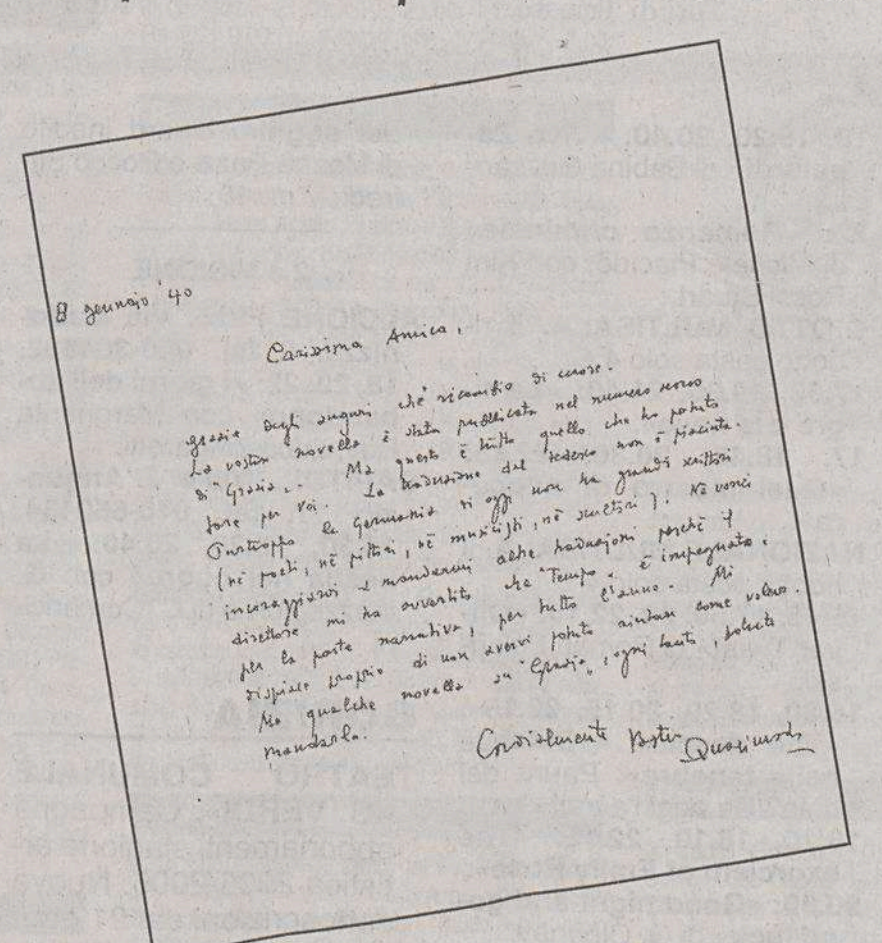 8 gennaio '40
Carissima Amica,
grazie degli auguri che ricambio di cuore.
La vostra novella è stata pubblicata nel numero scorso
di "Grazia". Ma questo è tutto quello che ho potuto
fare per voi. La traduzione dal tedesco non è piaciuta.
Purtroppo la Germania di oggi non ha grandi scrittori
(né poeti, né pittori, né musicisti, né scultori). Né vorrei
incoraggiarvi a mandarmi altre traduzioni perché il
direttore mi ha avvertito che "Tempo" è impegnato,
per la parte narrativa, per tutto l'anno. Mi
dispiace proprio di non avervi potuto aiutare come volevo.
Ma qualche novella su "Grazia", ogni tanto, potete
mandarla.
Cordialmente Vostro
Quasimodo